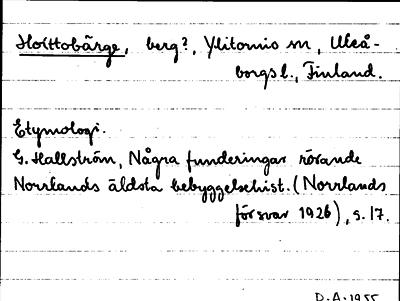 Hoittobärge, berg?, Ylitornio sn, Uleå-
borgs l., Finland.
Etymologi.
G. Hallström, Några funderingar rörande
Norrlands äldsta bebyggelsehist. (Norrlands
försvar 1926), s. 17.
D.A. 1955